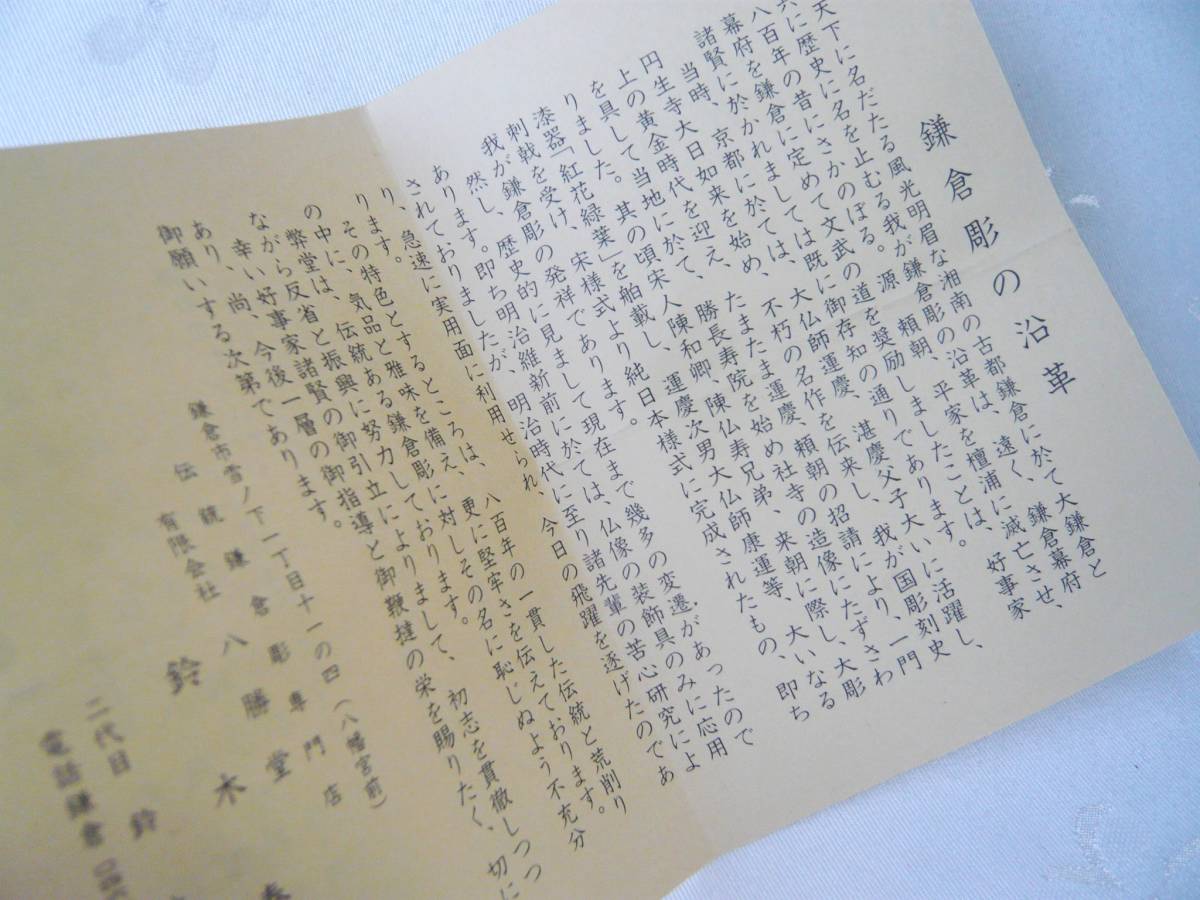 鎌倉彫の沿革
天下に名だたる風光明眉な湘南の古都鎌倉に於て大鎌倉と
共に歴史に名を止むる我が鎌倉彫の沿革は、遠く、鎌倉幕府
八百年の昔にさかのぼる。源 頼朝、平家を檀浦に滅亡させ、
幕府を鎌倉に定めて文武の道を奨励しましたことは、好事家
諸賢に於かれましては既に御存知の通りであります。
当時、京都に於ては、大仏師運慶、湛慶父子大いに活躍し、
円生寺大日如来を始め、不朽の名作を伝来し、我が国彫刻史
上の黄金時代を迎え、たまたま運慶、頼朝の招請により、一門
を具して当地に於て、勝長寿院を始め社寺の造像にたずさわ
りました。其の頃宋人陳和卿、陳仏寿兄弟、来朝に際し、大彫
漆器「紅花緑葉」を舶載し、運慶次男大仏師康運等、大いなる
刺戟を受け、宋様式より純日本様式に完成されたもの、即ち
我が鎌倉彫の発祥であります。
然し、歴史的に見まして現在まで幾多の変遷があったので
あります。即ち明治維新前に於ては、仏像の装飾具のみに応用
されておりましたが、明治時代に至り諸先輩の苦心研究によ
り、急速に実用面に利用せられ、今日の飛躍を遂げたのであ
ります。
その特色とするところは、八百年の一貫した伝統と荒削り
の中に、気品と雅味を備え、更に堅牢さを伝えております。
弊堂は、伝統ある鎌倉彫に対しその名に恥じぬよう不充分
ながら反省と振興に努力しております。
幸い好事家諸賢の御引立によりまして、初志を貫徹しつつ
あり、尚、今後一層の御指導と御鞭撻の栄を賜りたく、切に
御願いする次第であります。
鎌倉市雪ノ下一丁目十一の四(八幡宮前)
伝統鎌倉彫専門店
有限会社 八勝堂
鈴木
二代目 鈴
電話鎌倉